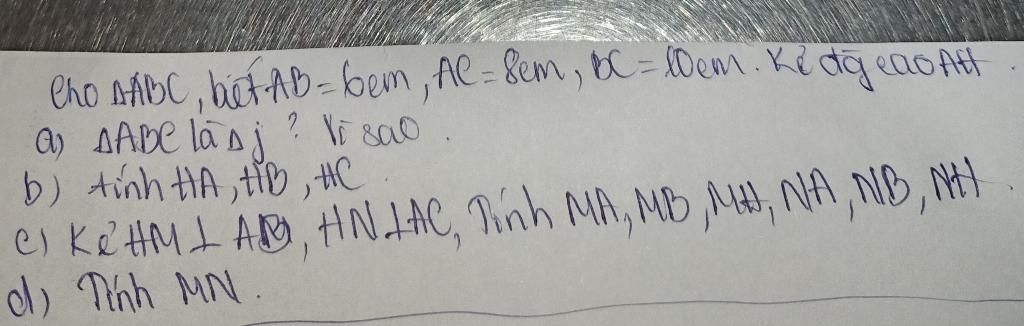 Cho ΔABC, biết AB = 6cm, AC = 8cm, BC = 10cm. Kẻ đg cao AH.
a) ΔABC là Δ j ? Vì sao.
b) tính HA, HB, HC.
c) Kẻ HM ⊥ AB, HN ⊥ AC, Tính MA, MB, MH, NA, NB, NH.
d) Tính MN.